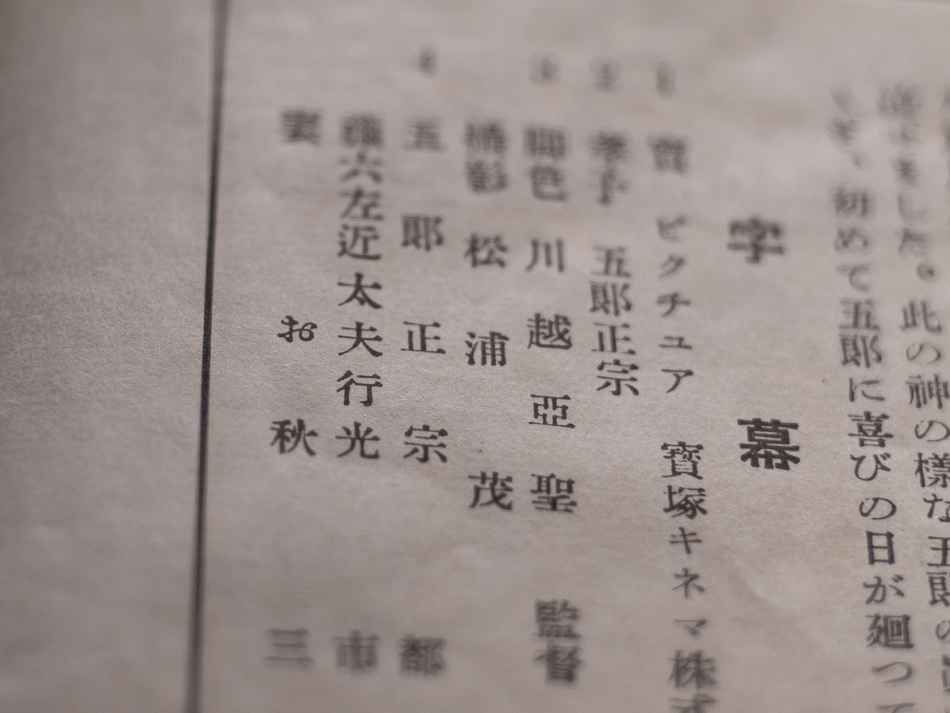 した。此の神の様な五郎の
初めて五郎に喜びの日が廻つて
字幕
1 寳ピクチュア 寳塚キネマ株式
2 孝子 五郎正宗
3 脚色 川越亞聖 監督
橋彰 松浦茂
4 五郎正宗 都
藤六左近太夫行光 市
妻 お秋 三